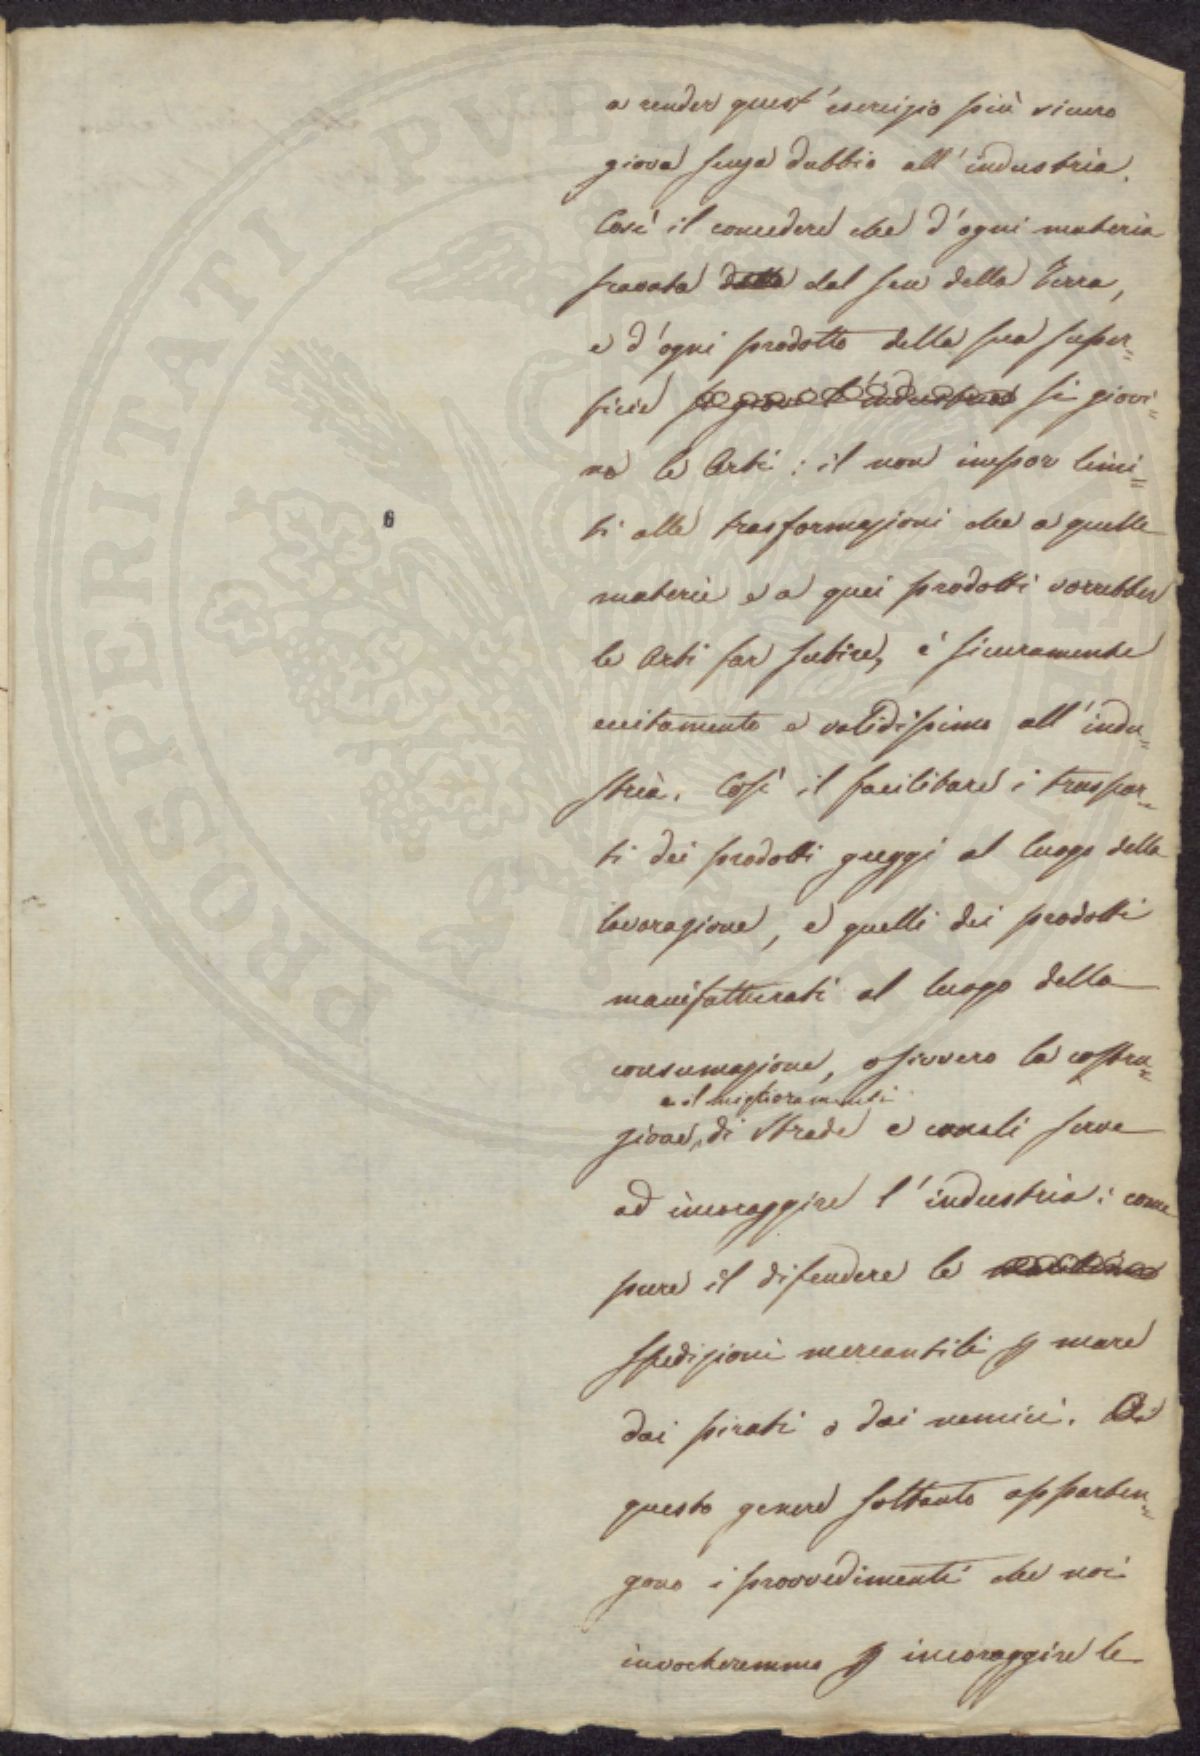 a render quest'esercizio più sicuro
giova senza dubbio all'industria.
Così il concedere che d'ogni materia
scavata dal sen della Terra,
e d'ogni prodotto della sua super=
ficie si giova l'industria si giovi=
no le Arti: il non impor limi=
ti alle trasformazioni che a quelle
materie e a quei prodotti vorrebber
le Arti far subire, è sicuramente
eccitamento e validissimo all'indu=
stria. Così il facilitare i traspor=
ti dei prodotti greggi al luogo della
lavorazione, e quelli dei prodotti
manifatturati al luogo della
consumazione, ossivvero la costru=
e il miglioramenti
zione, di strade e canali serve
ad incoraggire l'industria: come
pure il difendere le
spedizioni mercantili p mare
dai pirati o dai nemici. Di
questo genere soltanto apparten=
gono i provvedimenti che noi
invocheremmo p incoraggire le
6
PROSPERITATI PVBLICAE